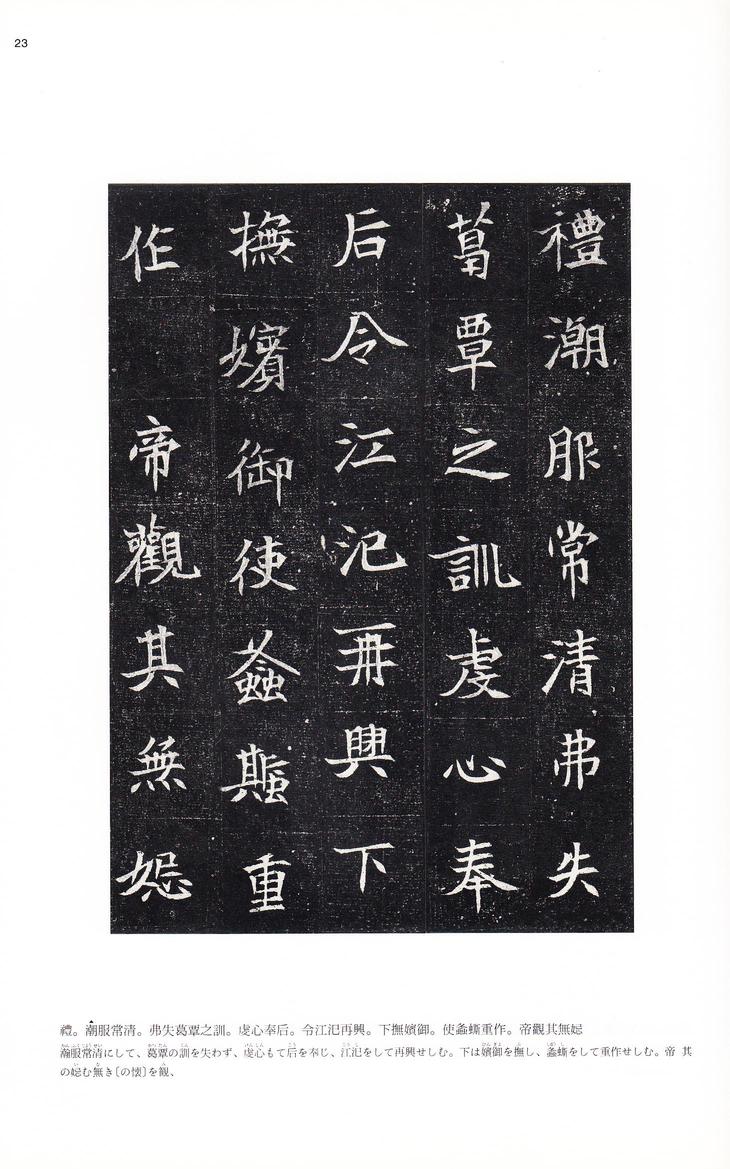 23
禮潮服常清弗失
葛覃之訓虔心奉
后令江汜再興下
撫嬪御使螽蟴重
作 帝觀其無㛍
禮。潮服常清。弗失葛覃之訓。虔心奉后。令江汜再興。下撫嬪御。使螽蟴重作。帝觀其無㛍
瀚服常清にして、葛覃の訓を失わず、虔心もて后を奉じ、江汜をして再興せしむ。下は嬪御を撫し、螽蟴をして重作せしむ。帝 其
の㛍む無き〔の懐〕を観、